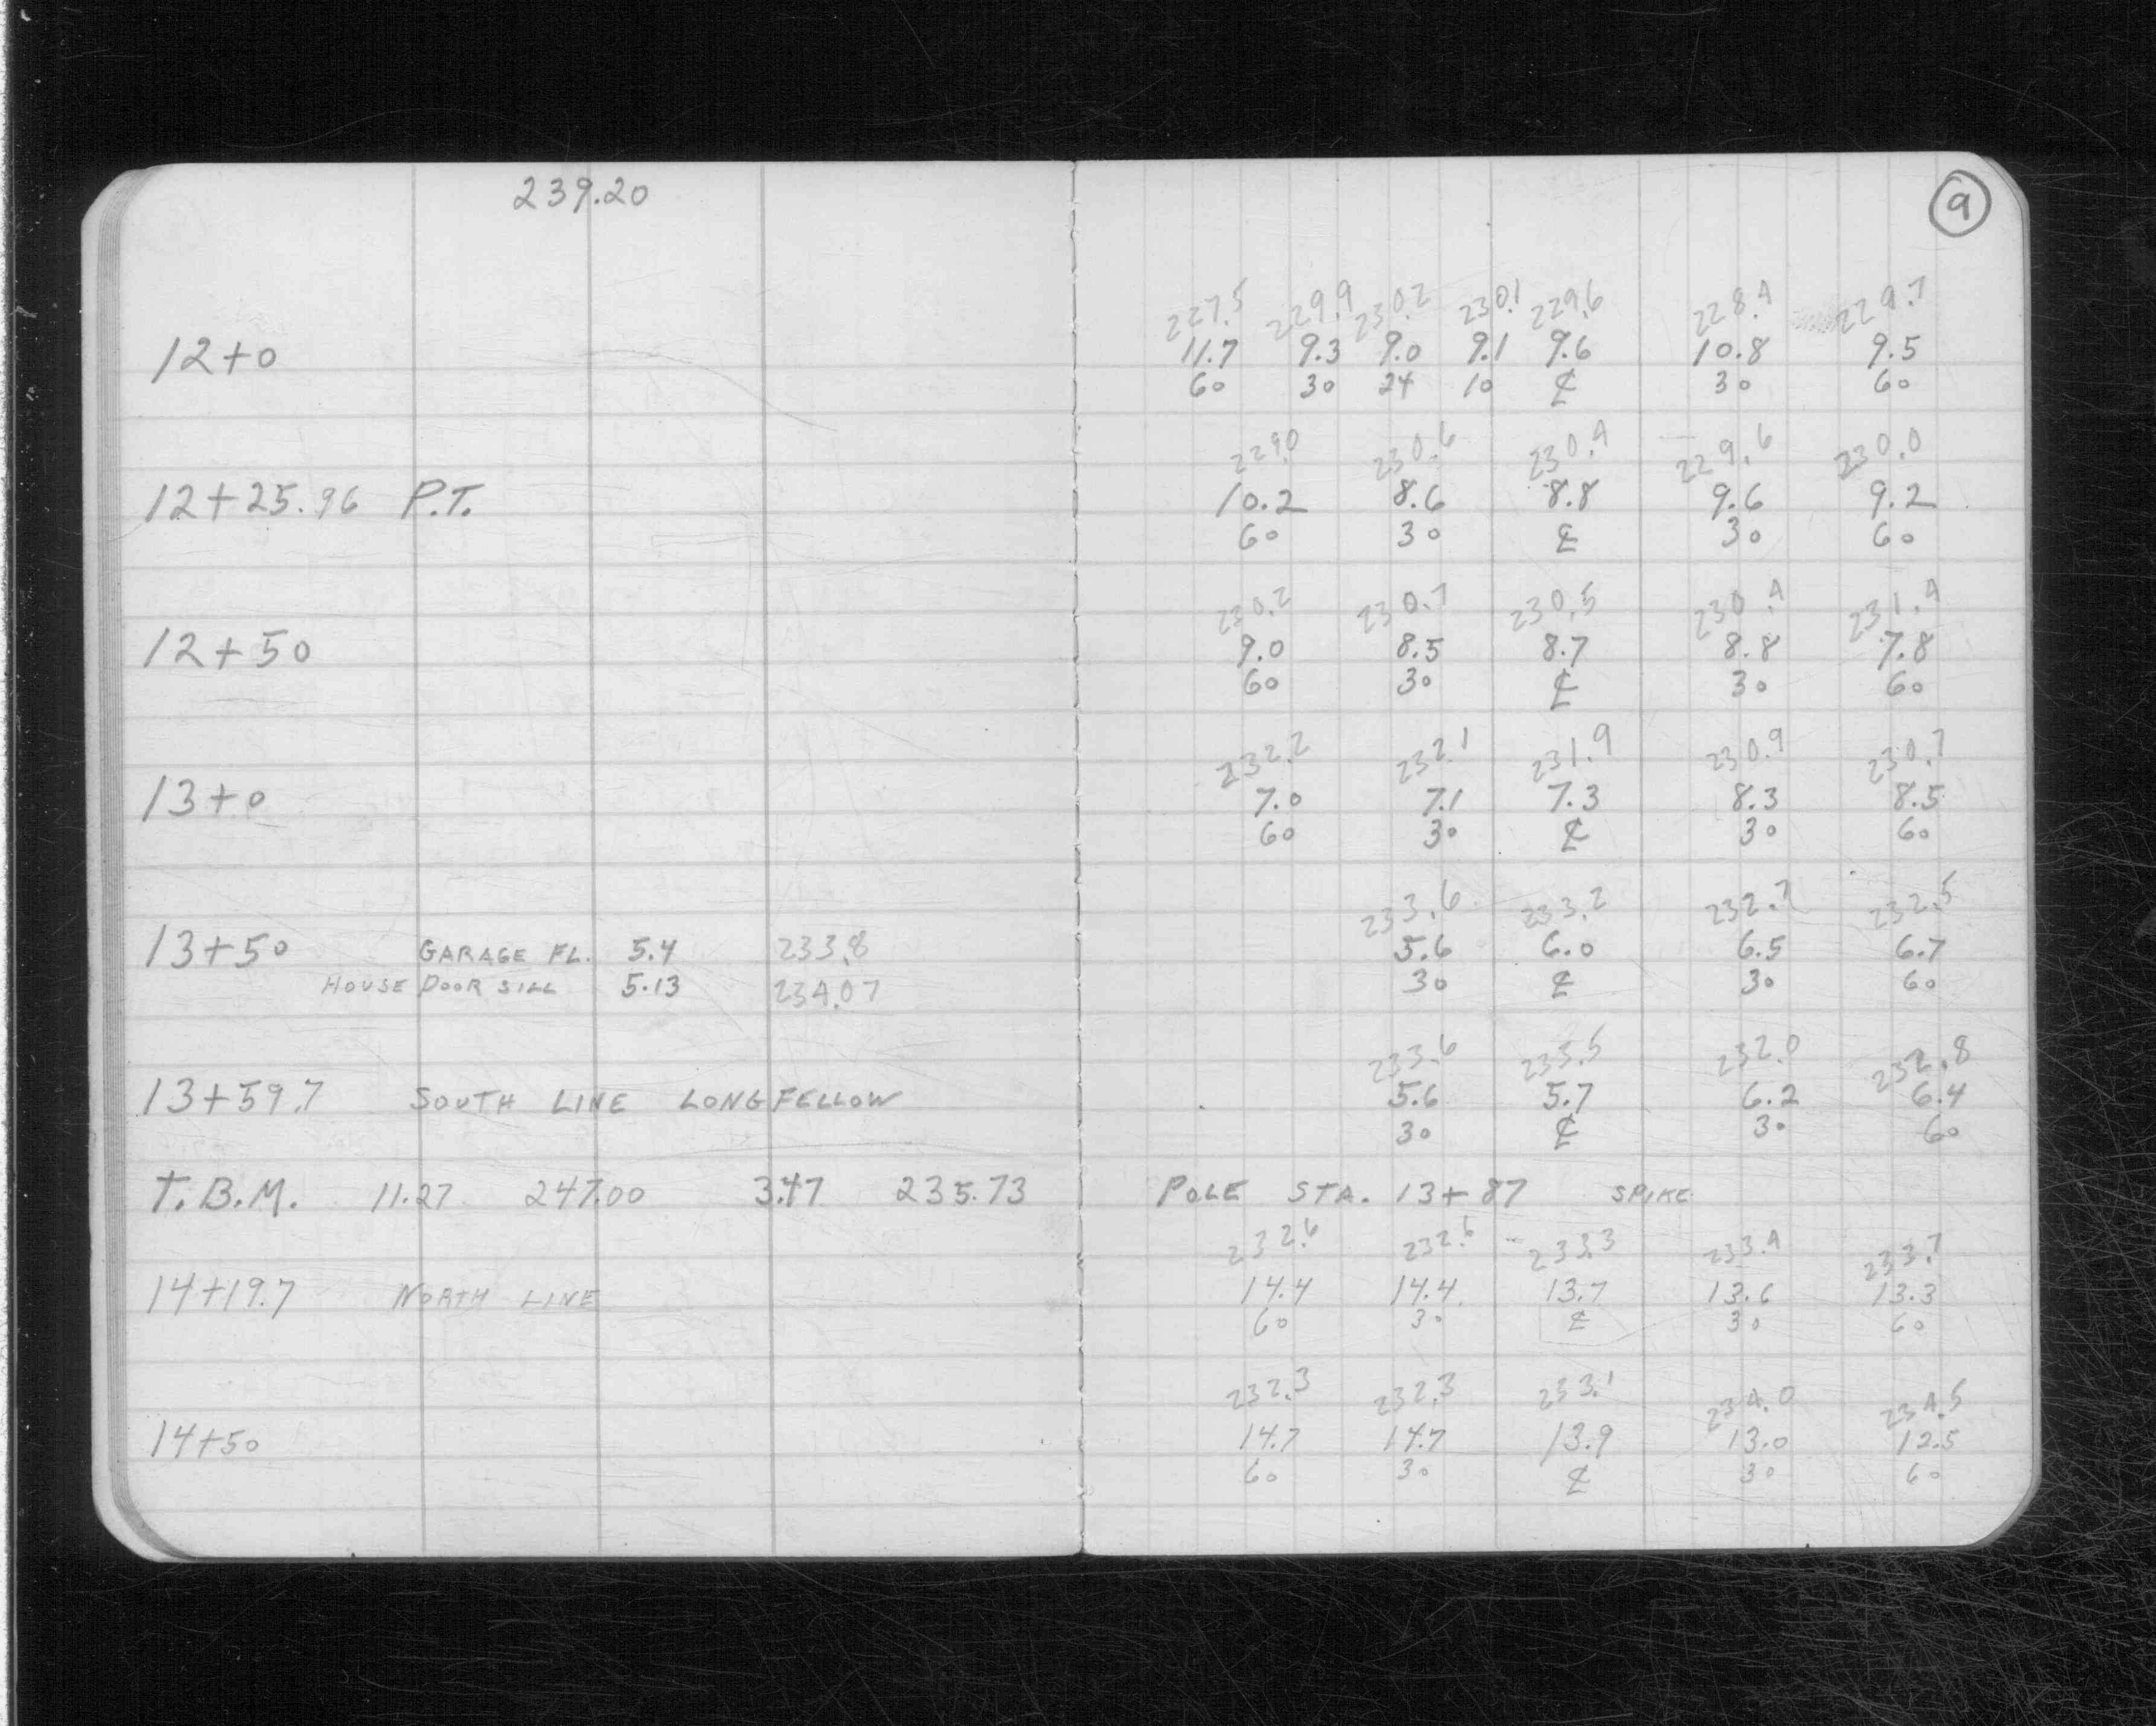 239.20
9
227.5 229.9 230.2 230.1 229.6 228.4 229.7
12+0 11.7 9.3 9.0 9.1 9.6 10.8 9.5
60 30 24 10 ℄ 30 60
229.0 230.6 230.4 229.6 230.0
12+25.96 P.T. 10.2 8.6 8.8 9.6 9.2
60 30 ℄ 30 60
230.2 230.7 230.5 230.4 231.4
12+50 9.0 8.5 8.7 8.8 7.8
60 30 ℄ 30 60
232.2 232.1 231.9 230.9 230.7
13+0 7.0 7.1 7.3 8.3 8.5
60 30 ℄ 30 60
233.6 233.2 232.7 232.5
13+50 GARAGE FL. 5.4 233.8 5.6 6.0 6.5 6.7
HOUSE DOOR SILL 5.13 234.07 30 ℄ 30 60
233.6 233.5 232.0 232.8
13+59.7 SOUTH LINE LONGFELLOW 5.6 5.7 6.2 6.4
30 ℄ 30 60
T.B.M. 11.27 247.00 3.47 235.73 POLE STA. 13+87 SPIKE
232.6 232.6 233.3 233.4 233.7
14+19.7 NORTH LINE 14.4 14.4 13.7 13.6 13.3
60 30 ℄ 30 60
232.3 232.3 233.1 234.0 234.5
14+50 14.7 14.7 13.9 13.0 12.5
60 30 ℄ 30 60